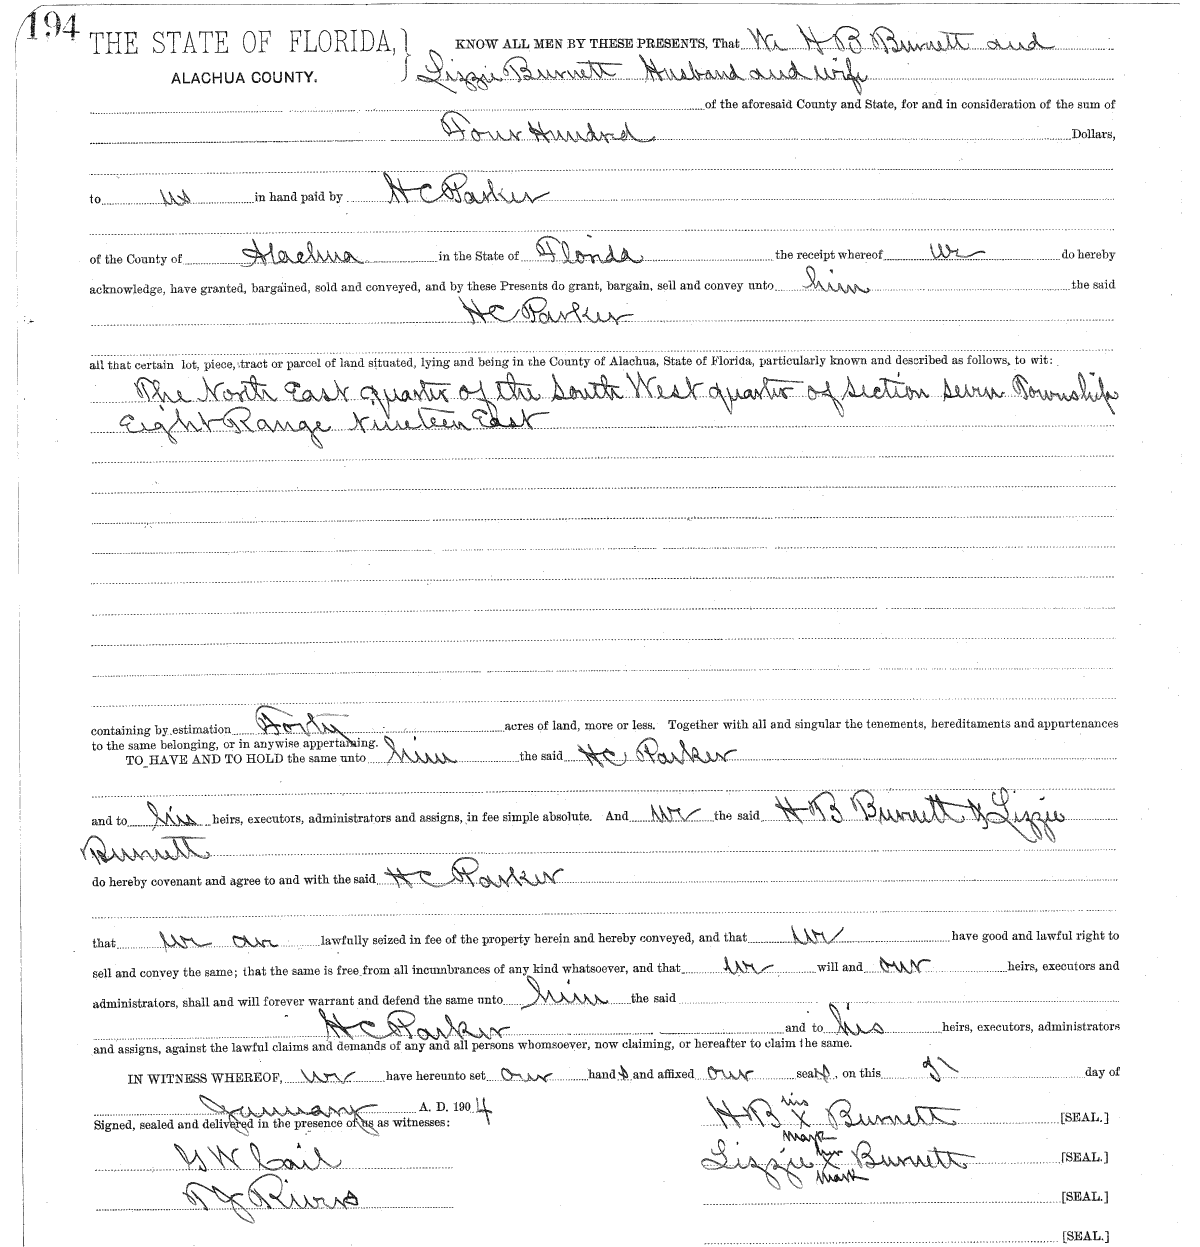 194
THE STATE OF FLORIDA, } KNOW ALL MEN BY THESE PRESENTS, That We H B Burnett and
ALACHUA COUNTY. Lizzie Burnett Husband and wife
of the aforesaid County and State, for and in consideration of the sum of
Four Hundred Dollars,
to us in hand paid by H C Parker
of the County of Alachua in the State of Florida the receipt whereof we do hereby
acknowledge, have granted, bargained, sold and conveyed, and by these Presents do grant, bargain, sell and convey unto him the said
H C Parker
all that certain lot, piece, tract or parcel of land situated, lying and being in the County of Alachua, State of Florida, particularly known and described as follows, to wit:
The North East quarter of the South West quarter of Section Seven Township
Eight Range Nineteen East
containing by estimation Forty acres of land, more or less. Together with all and singular the tenements, hereditaments and appurtenances
to the same belonging, or in anywise appertaining.
TO HAVE AND TO HOLD the same unto him the said H C Parker
and to his heirs, executors, administrators and assigns, in fee simple absolute. And we the said H B Burnett & Lizzie
Burnett
do hereby covenant and agree to and with the said H C Parker
that we are lawfully seized in fee of the property herein and hereby conveyed, and that we have good and lawful right to
sell and convey the same; that the same is free from all incumbrances of any kind whatsoever, and that we will and our heirs, executors and
administrators, shall and will forever warrant and defend the same unto him the said
H C Parker and to his heirs, executors, administrators
and assigns, against the lawful claims and demands of any and all persons whomsoever, now claiming, or hereafter to claim the same.
IN WITNESS WHEREOF, we have hereunto set our hands and affixed our seals, on this day of
January A. D. 1904
Signed, sealed and delivered in the presence of us as witnesses:
H B his X mark Burnett [SEAL.]
G W Cail
Lizzie her X mark Burnett [SEAL.]
Rivers
[SEAL.]
[SEAL.]